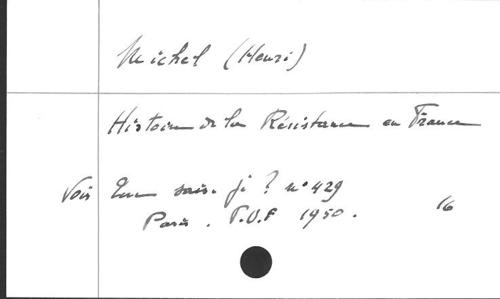 Michel (Henri)
Histoire de la Résistance en France
Voir Que sais-je ? n° 429
Paris. P.U.F 1950. 16